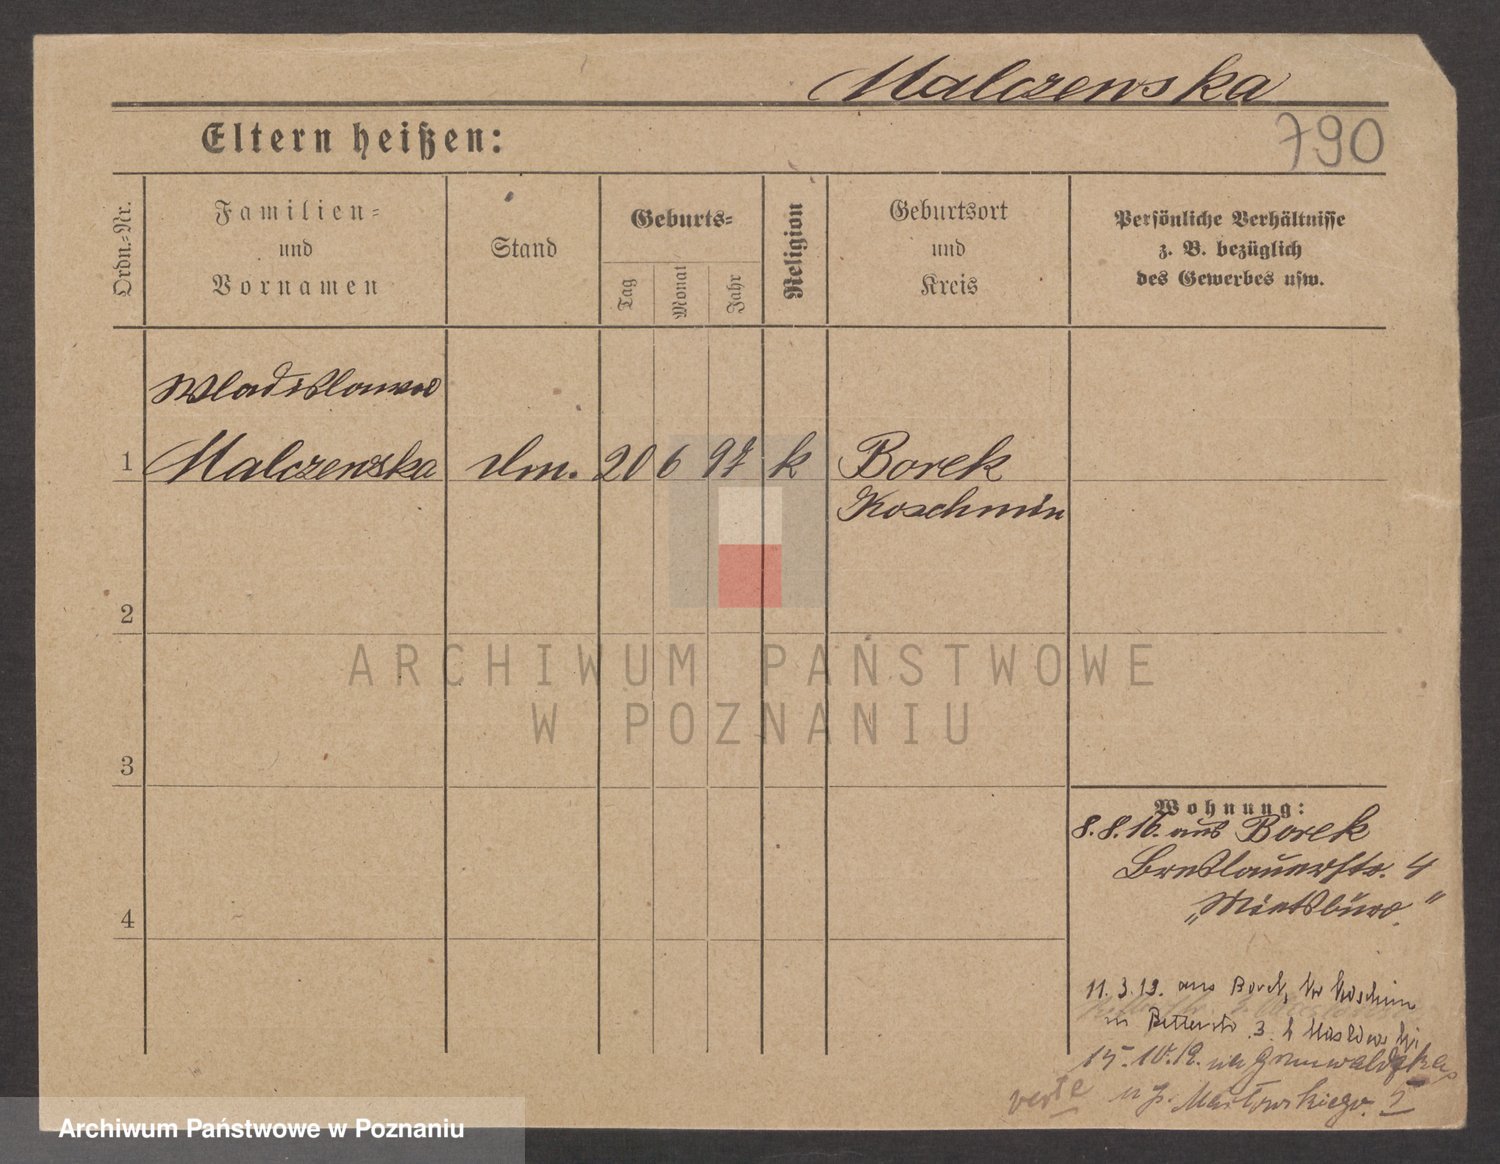 Malczewska
790
Eltern heißen:
Ordn.-Nr.
Familien-
und
Vornamen
Stand
Geburts-
Tag
Monat
Jahr
Religion
Geburtsort
und
Kreis
Persönliche Verhältnisse
z. B. bezüglich
des Gewerbes usw.
Wladislawa
1 Malczewska 20 6 97 k Borek
Koschmin
2
3
4
Wohnung:
8.8.16. aus Borek
Breslauerstr. 4
„Mietsbüro."
11.3.19. aus Borek, Kr Koschmin
in 3.
15.10.19. Grunwaldzka
Masłowskiego 5
verte
ARCHIWUM PAŃSTWOWE
W POZNANIU
Archiwum Państwowe w Poznaniu